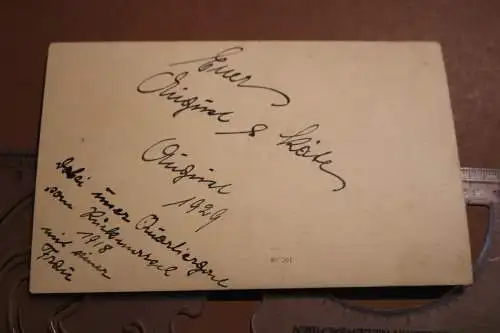 Euer
August & Käte
August
1929
dabei unser Quartiergast
vom Rückmarsch
1918
mit seiner
Frau